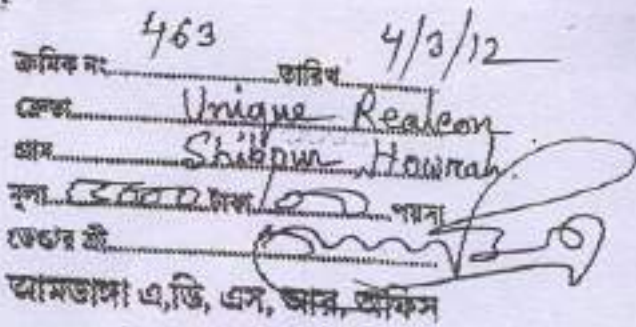 ক্রমিক নং 463 তারিখ 4/3/12
ক্রেতা Unique Realcon
গ্রাম Shibpur Howrah.
মূল্য টাকা পয়সা
ভেণ্ডার শ্রী
আমডাঙ্গা এ,ডি, এস, আর, অফিস